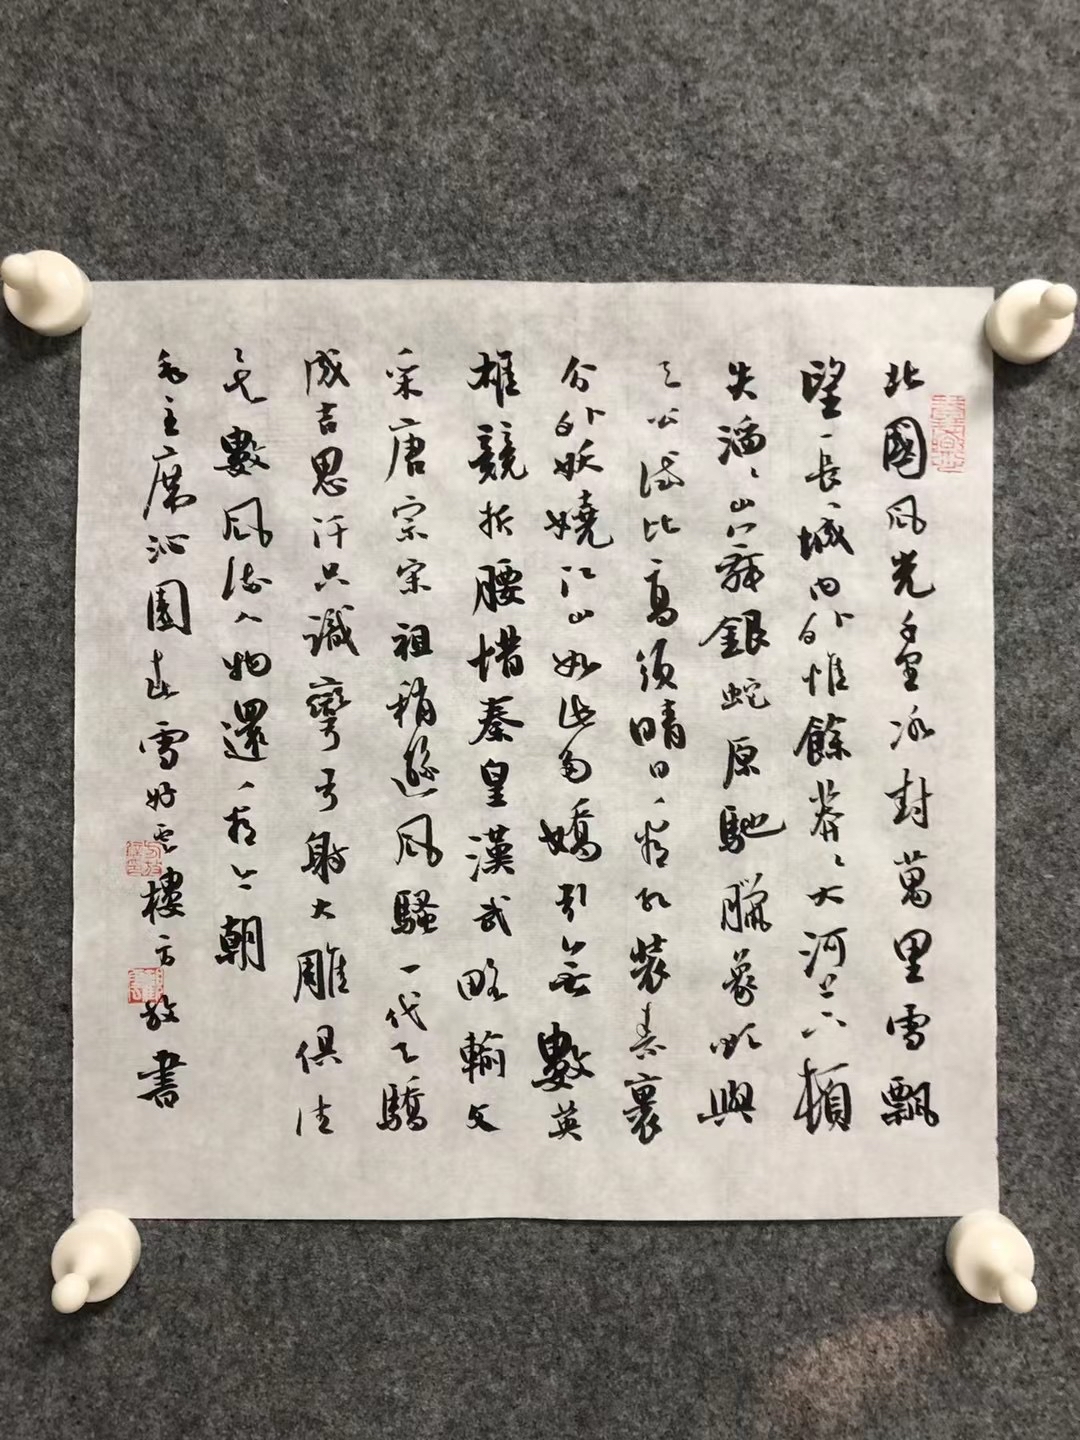 北國風光千里冰封萬里雪飄
望長城內外惟餘莽莽大河上下頓
失滔滔山舞銀蛇原馳臘象欲與
天公試比高須晴日看紅裝素裹
分外妖嬈江山如此多嬌引無數英
雄競折腰惜秦皇漢武略輸文
采唐宗宋祖稍遜風騷一代天驕
成吉思汗只識彎弓射大雕俱往
矣數風流人物還看今朝
毛主席沁園春雪好雲樓方放書